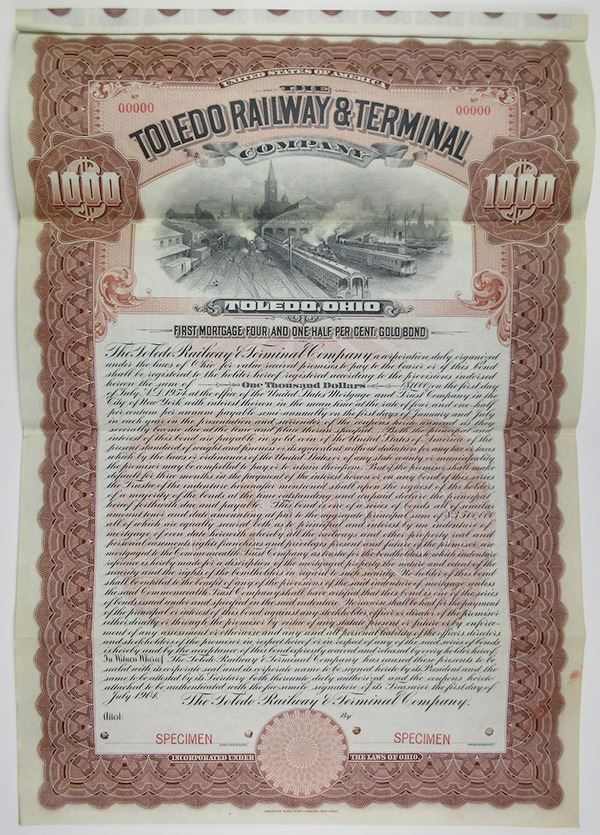 UNITED STATES OF AMERICA
Nº 00000
Nº 00000
THE
TOLEDO RAILWAY & TERMINAL
COMPANY
1000
1000
TOLEDO, OHIO
FIRST MORTGAGE FOUR AND ONE HALF PER CENT. GOLD BOND
The Toledo Railway & Terminal Company a corporation duly organized
under the laws of Ohio for value received promises to pay to the bearer or if this bond
shall be registered to the holder hereof registered according to the provisions endorsed
hereon the sum of One Thousand Dollars $1000 on the first day
of July A.D. 1954 at the office of the United States Mortgage and Trust Company in the
City of New York with interest thereon in the mean time at the rate of four and one half
per centum per annum payable semi annually on the first days of January and July
in each year on the presentation and surrender of the coupons hereto annexed as they
interest of this bond are payable in gold coin of the United States of America of the
present standard of weight and fineness or its equivalent without deduction for any tax or taxes
which by the laws or ordinances of the United States or of any state county or municipality
the promisor may be compelled to pay or to retain therefrom. But if the promisor shall make
default for three months in the payment of the interest hereon or on any bond of this series
the Trustee of the mortgage hereinafter mentioned shall upon the request of the holders
of a majority of the bonds at the time outstanding and unpaid declare the principal
hereof forthwith due and payable. This bond is one of a series of bonds all of similar
all of which are equally secured both as to principal and interest by an indenture of
mortgage of even date herewith whereby all the railways and other property real and
mortgaged to the Commonwealth Trust Company as trustee for the bondholders to which indenture
reference is hereby made for a description of the mortgaged property the nature and extent of the
security and the rights of the bondholders in regard to such security. No holder of this bond
shall be entitled to the benefit of any of the provisions of the said indenture of mortgage unless
the said Commonwealth Trust Company shall have certified that this bond is one of the series
of bonds issued under and specified in the said indenture. No recourse shall be had for the payment
of the principal or interest of this bond against any stockholder officer or director of the promisor
either directly or through the promisor by virtue of any statute present or future or by enforce-
ment of any assessment or otherwise and any and all personal liability of the officers directors
and stockholders of the promisor in respect hereof or in respect of any of this series of bonds
is hereby and by the acceptance of this bond expressly waived and released by every holder hereof.
In Witness Whereof The Toledo Railway & Terminal Company has caused these presents to be
sealed with its corporate seal and its corporate name to be signed hereto by its President and the
same to be attested by its Secretary both thereunto duly authorized and the coupons hereto
attached to be authenticated with the facsimile signature of its Treasurer the first day of
July 1904.
The Toledo Railway & Terminal Company.
Attest:
By
SPECIMEN SECRETARY.
SPECIMEN PRESIDENT.
INCORPORATED UNDER THE LAWS OF OHIO.